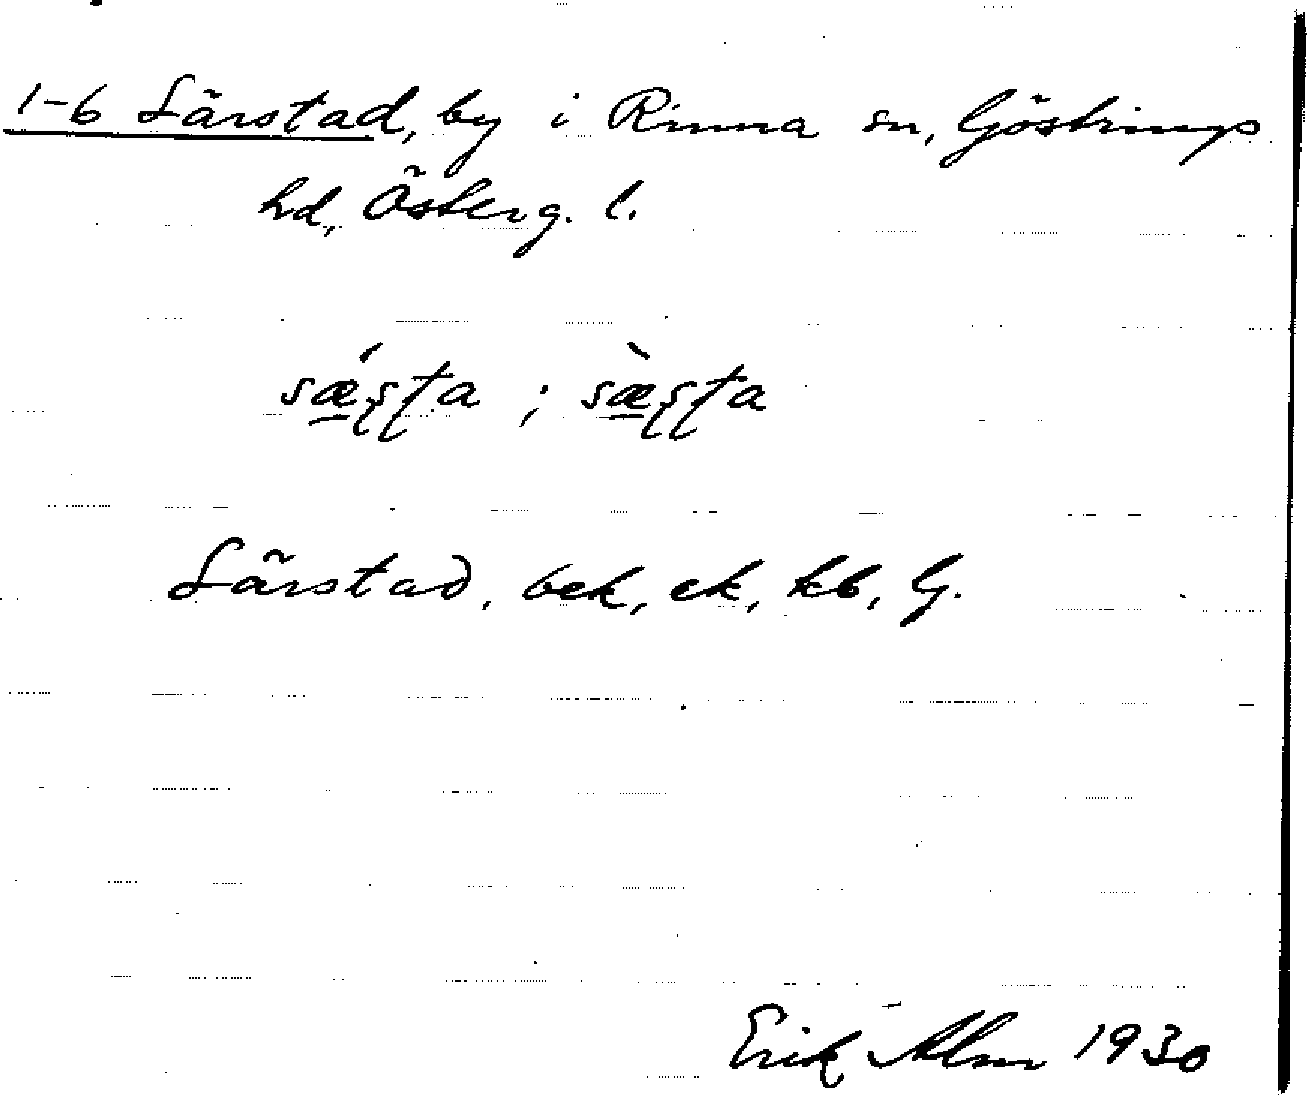 1-6 Särstad, by i Rinna sn, Göstrings
hd, Österg. l.
sǽʂʈa ; sæ̀ʂʈa
Särstad, bek, ek, kb, G.
Erik Alm 1930